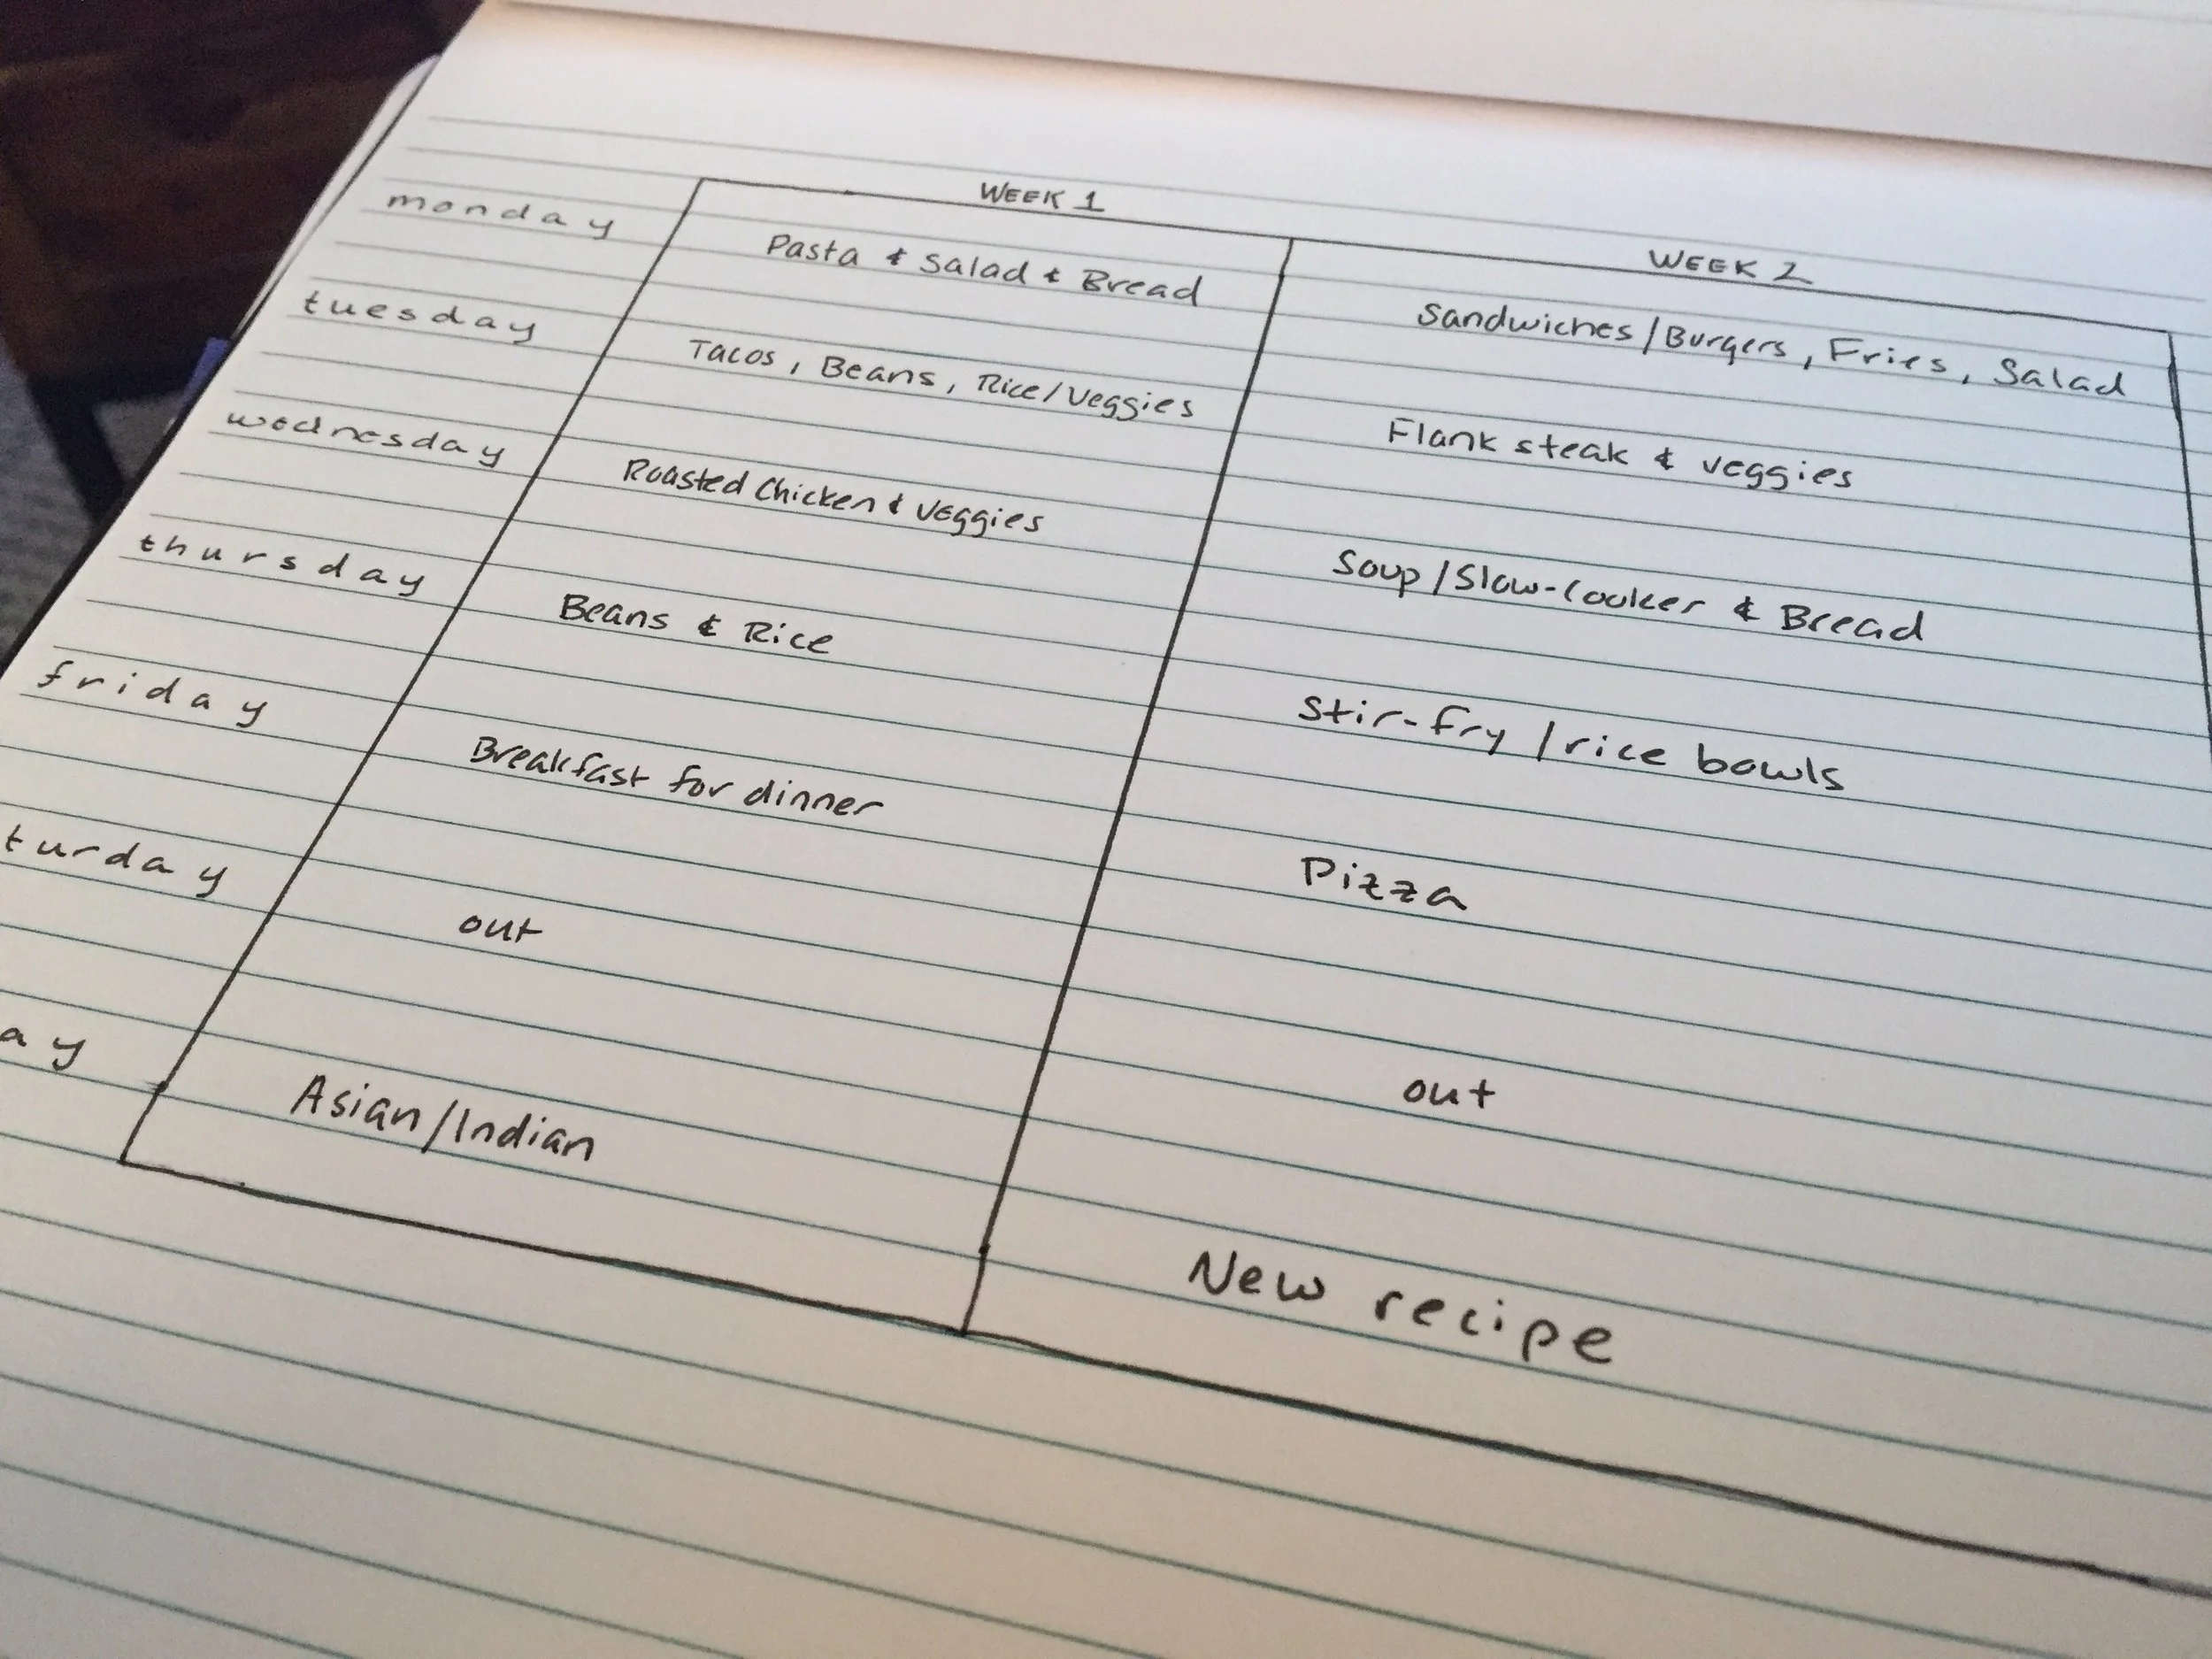 WEEK 1 WEEK 2
monday Pasta & Salad & Bread Sandwiches/Burgers, Fries, Salad
tuesday Tacos, Beans, Rice/Veggies Flank steak & veggies
wednesday Roasted Chicken & Veggies Soup/Slow-Cooker & Bread
thursday Beans & Rice Stir-fry/rice bowls
friday Breakfast for dinner Pizza
turday out out
ay Asian/Indian New recipe